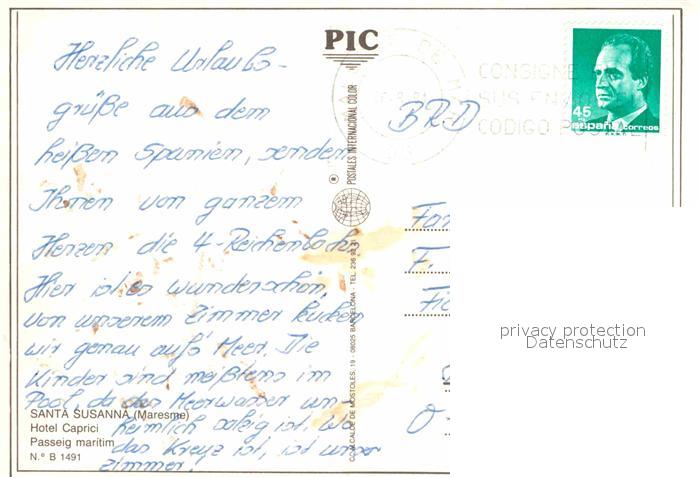 Herzliche Urlaubs-
grüße aus dem
heißen Spanien, senden
Ihnen von ganzem
Herzen die 4 Reichenbachs
Hier ist es wunderschön,
von unserem Zimmer kucken
wir genau auf's Meer. Die
Kinder sind meißtens im
Pool, da das Meerwasser un-
heimlich salzig ist. Wo
das Kreuz ist, ist unser
Zimmer!
SANTA SUSANNA (Maresme)
Hotel Caprici
Passeig marítim
N.º B 1491
PIC
POSTALES INTERNACIONAL COLOR
®
COMCALDE DE MOSTOLES, 19 - 08025 BARCELONA - TEL. 236 93 81
CONSIGNE
SUS ENV
CODIGO POSTAL
45
españa correos
BRD
Fam
F.
Fi
O
privacy protection
Datenschutz